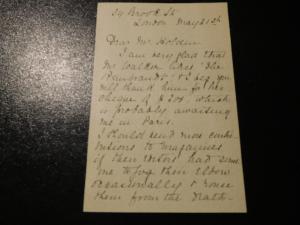 Brook St
London May 21st
Dear Mr. Holden
I am very glad that
Mr Walker likes "The
Rembrandt". & I beg you
will thank him for his
cheque of £200, which
is probably awaiting
me in Paris.
I should send more contri-
butions to magazines
if their Editors had
me to jog their elbow
occasionally & rouse
them from the